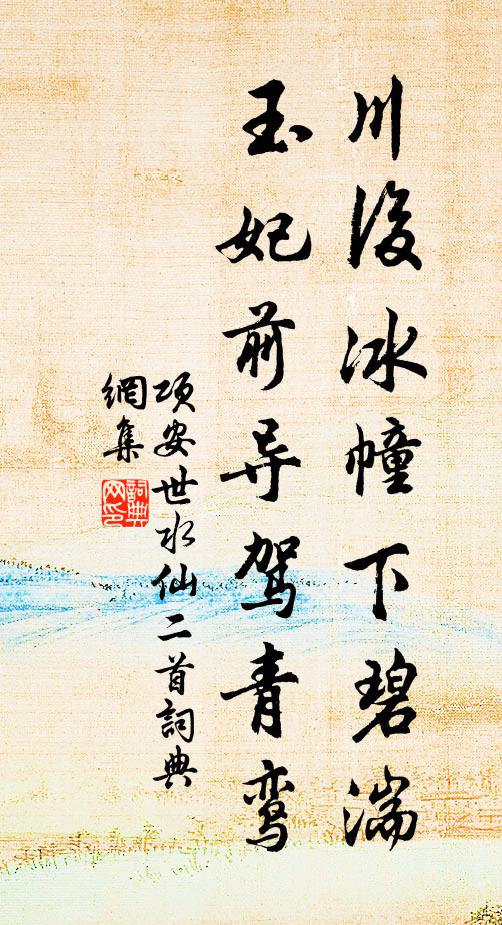 川後冰幢下碧湍
玉妃前导驾青鸾
项安世水仙二首詞典
網集
詞典
网印